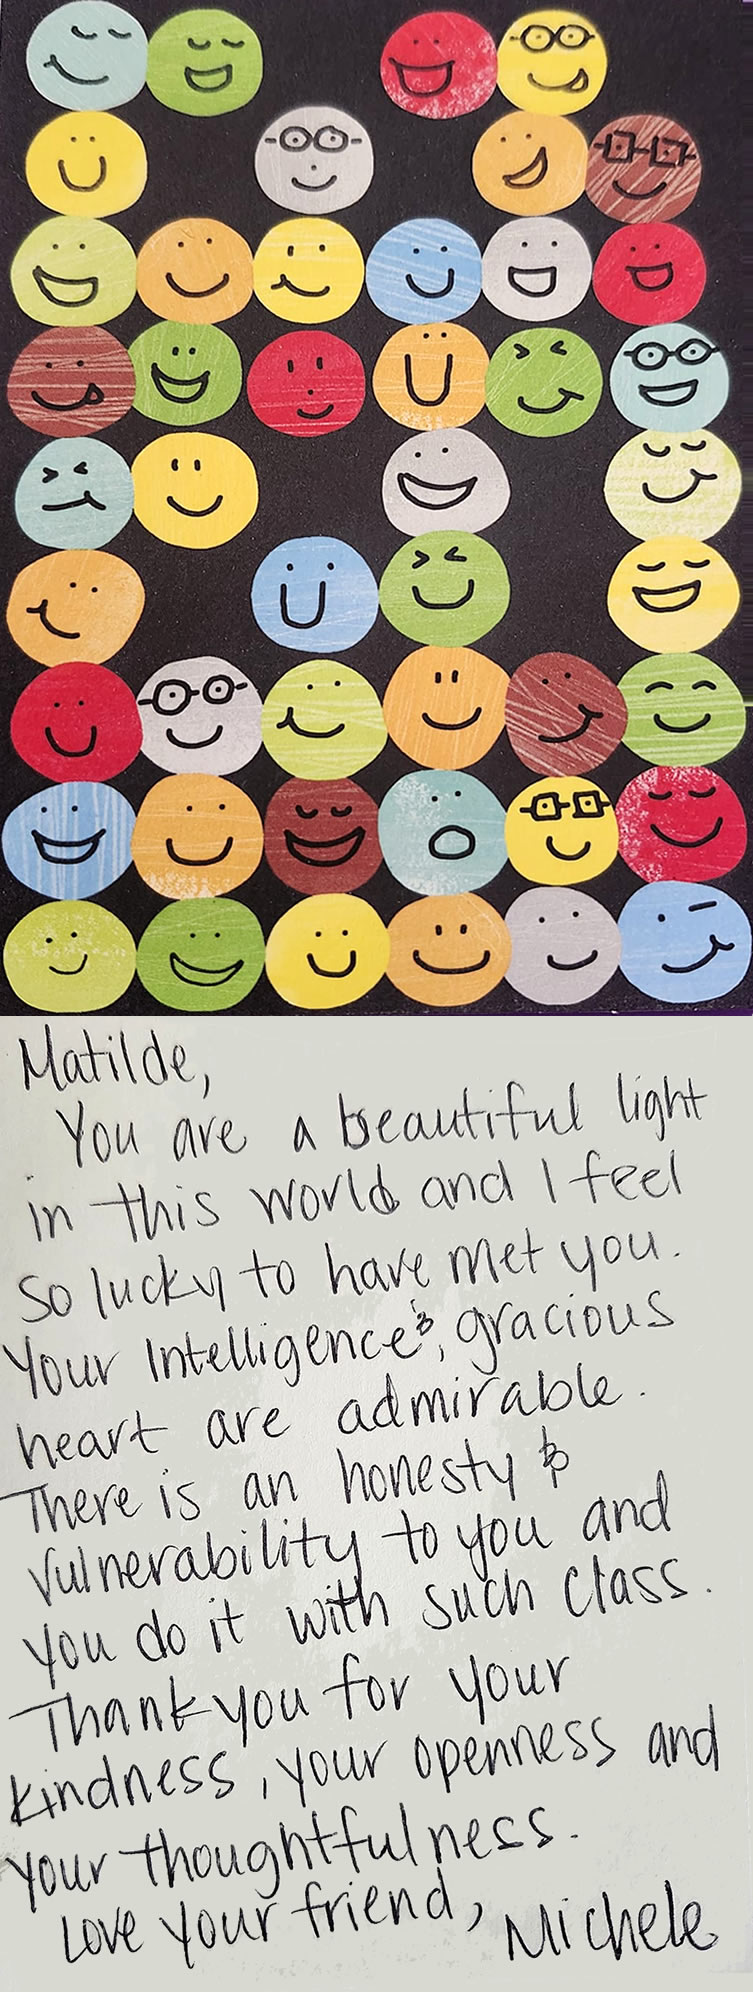 Matilde,
You are a beautiful light
in this world and I feel
so lucky to have met you.
Your Intelligence &, gracious
heart are admirable.
There is an honesty &
vulnerability to you and
you do it with such class.
Thank you for your
kindness, your openness and
your thoughtfulness.
Love your friend, Michele